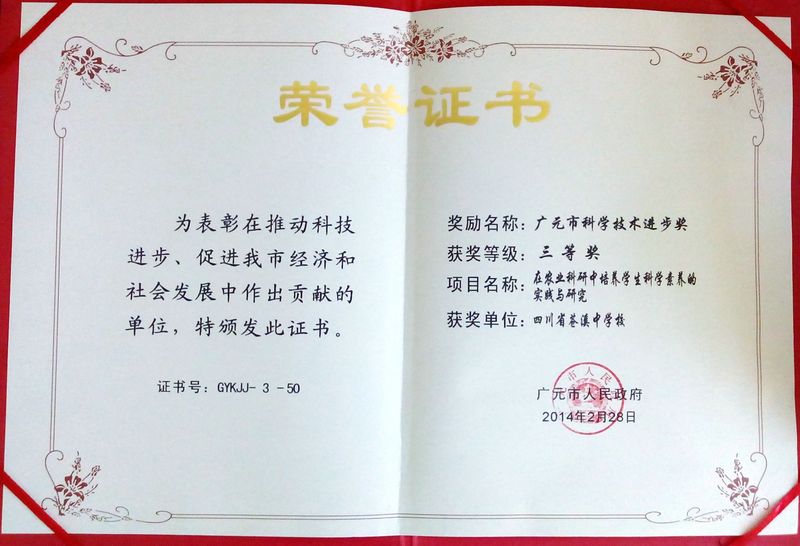 荣誉证书
为表彰在推动科技
进步、促进我市经济和
社会发展中作出贡献的
单位，特颁发此证书。
证书号：GYKJJ- 3 -50
奖励名称：广元市科学技术进步奖
获奖等级：三等奖
项目名称：在农业科研中培养学生科学素养的
实践与研究
获奖单位：四川省苍溪中学校
广元市人民政府
2014年2月28日